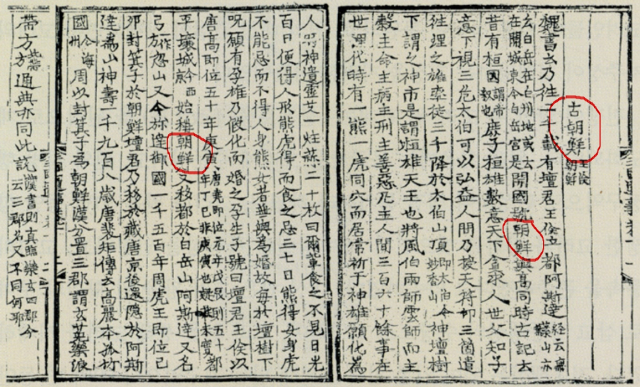 古朝鮮 王儉朝鮮
魏書云乃徃二千載有壇君王儉立都阿斯達 經云無葉山亦
云白岳在白州地或云在開城東今白岳宮是 開國號朝鮮與高同時古記云
昔有桓囯 謂帝釋也 庶子桓雄數意天下貪求人世父知子
意下視三危太伯可以弘益人間乃授天符印三箇遣
徃理之雄率徒三千降於太伯山頂 即太伯今妙香山 神壇樹
下謂之神市是謂桓雄天王也將風伯雨師雲師而主
穀主命主病主刑主善惡凡主人間三百六十餘事在
世理化時有一熊一虎同穴而居常祈于神雄願化為
人時神遺靈艾一炷蒜二十枚曰爾輩食之不見日光
百日便得人形熊虎得而食之忌三七日熊得女身虎
不能忌而不得人身熊女者無與為婚故每於壇樹下
呪願有孕雄乃假化而婚之孕生子號曰壇君王儉以
唐高即位五十年庚寅 唐堯即位元年戊辰則五十年丁巳非庚寅也疑其未實 都
平壤城 今西京 始稱朝鮮又移都於白岳山阿斯達又名
弓 一作方 忽山又今彌達御國一千五百年周虎王即位己
卯封箕子於朝鮮壇君乃移於藏唐京後還隱於阿斯
達為山神壽一千九百八歲唐裴矩傳云高麗本孤竹
國 今海州 周以封箕子為朝鮮漢分置三郡謂玄菟樂浪
帶方 北帶方 通典亦同此說 漢書則真臨樂玄四郡今云三郡名又不同何耶